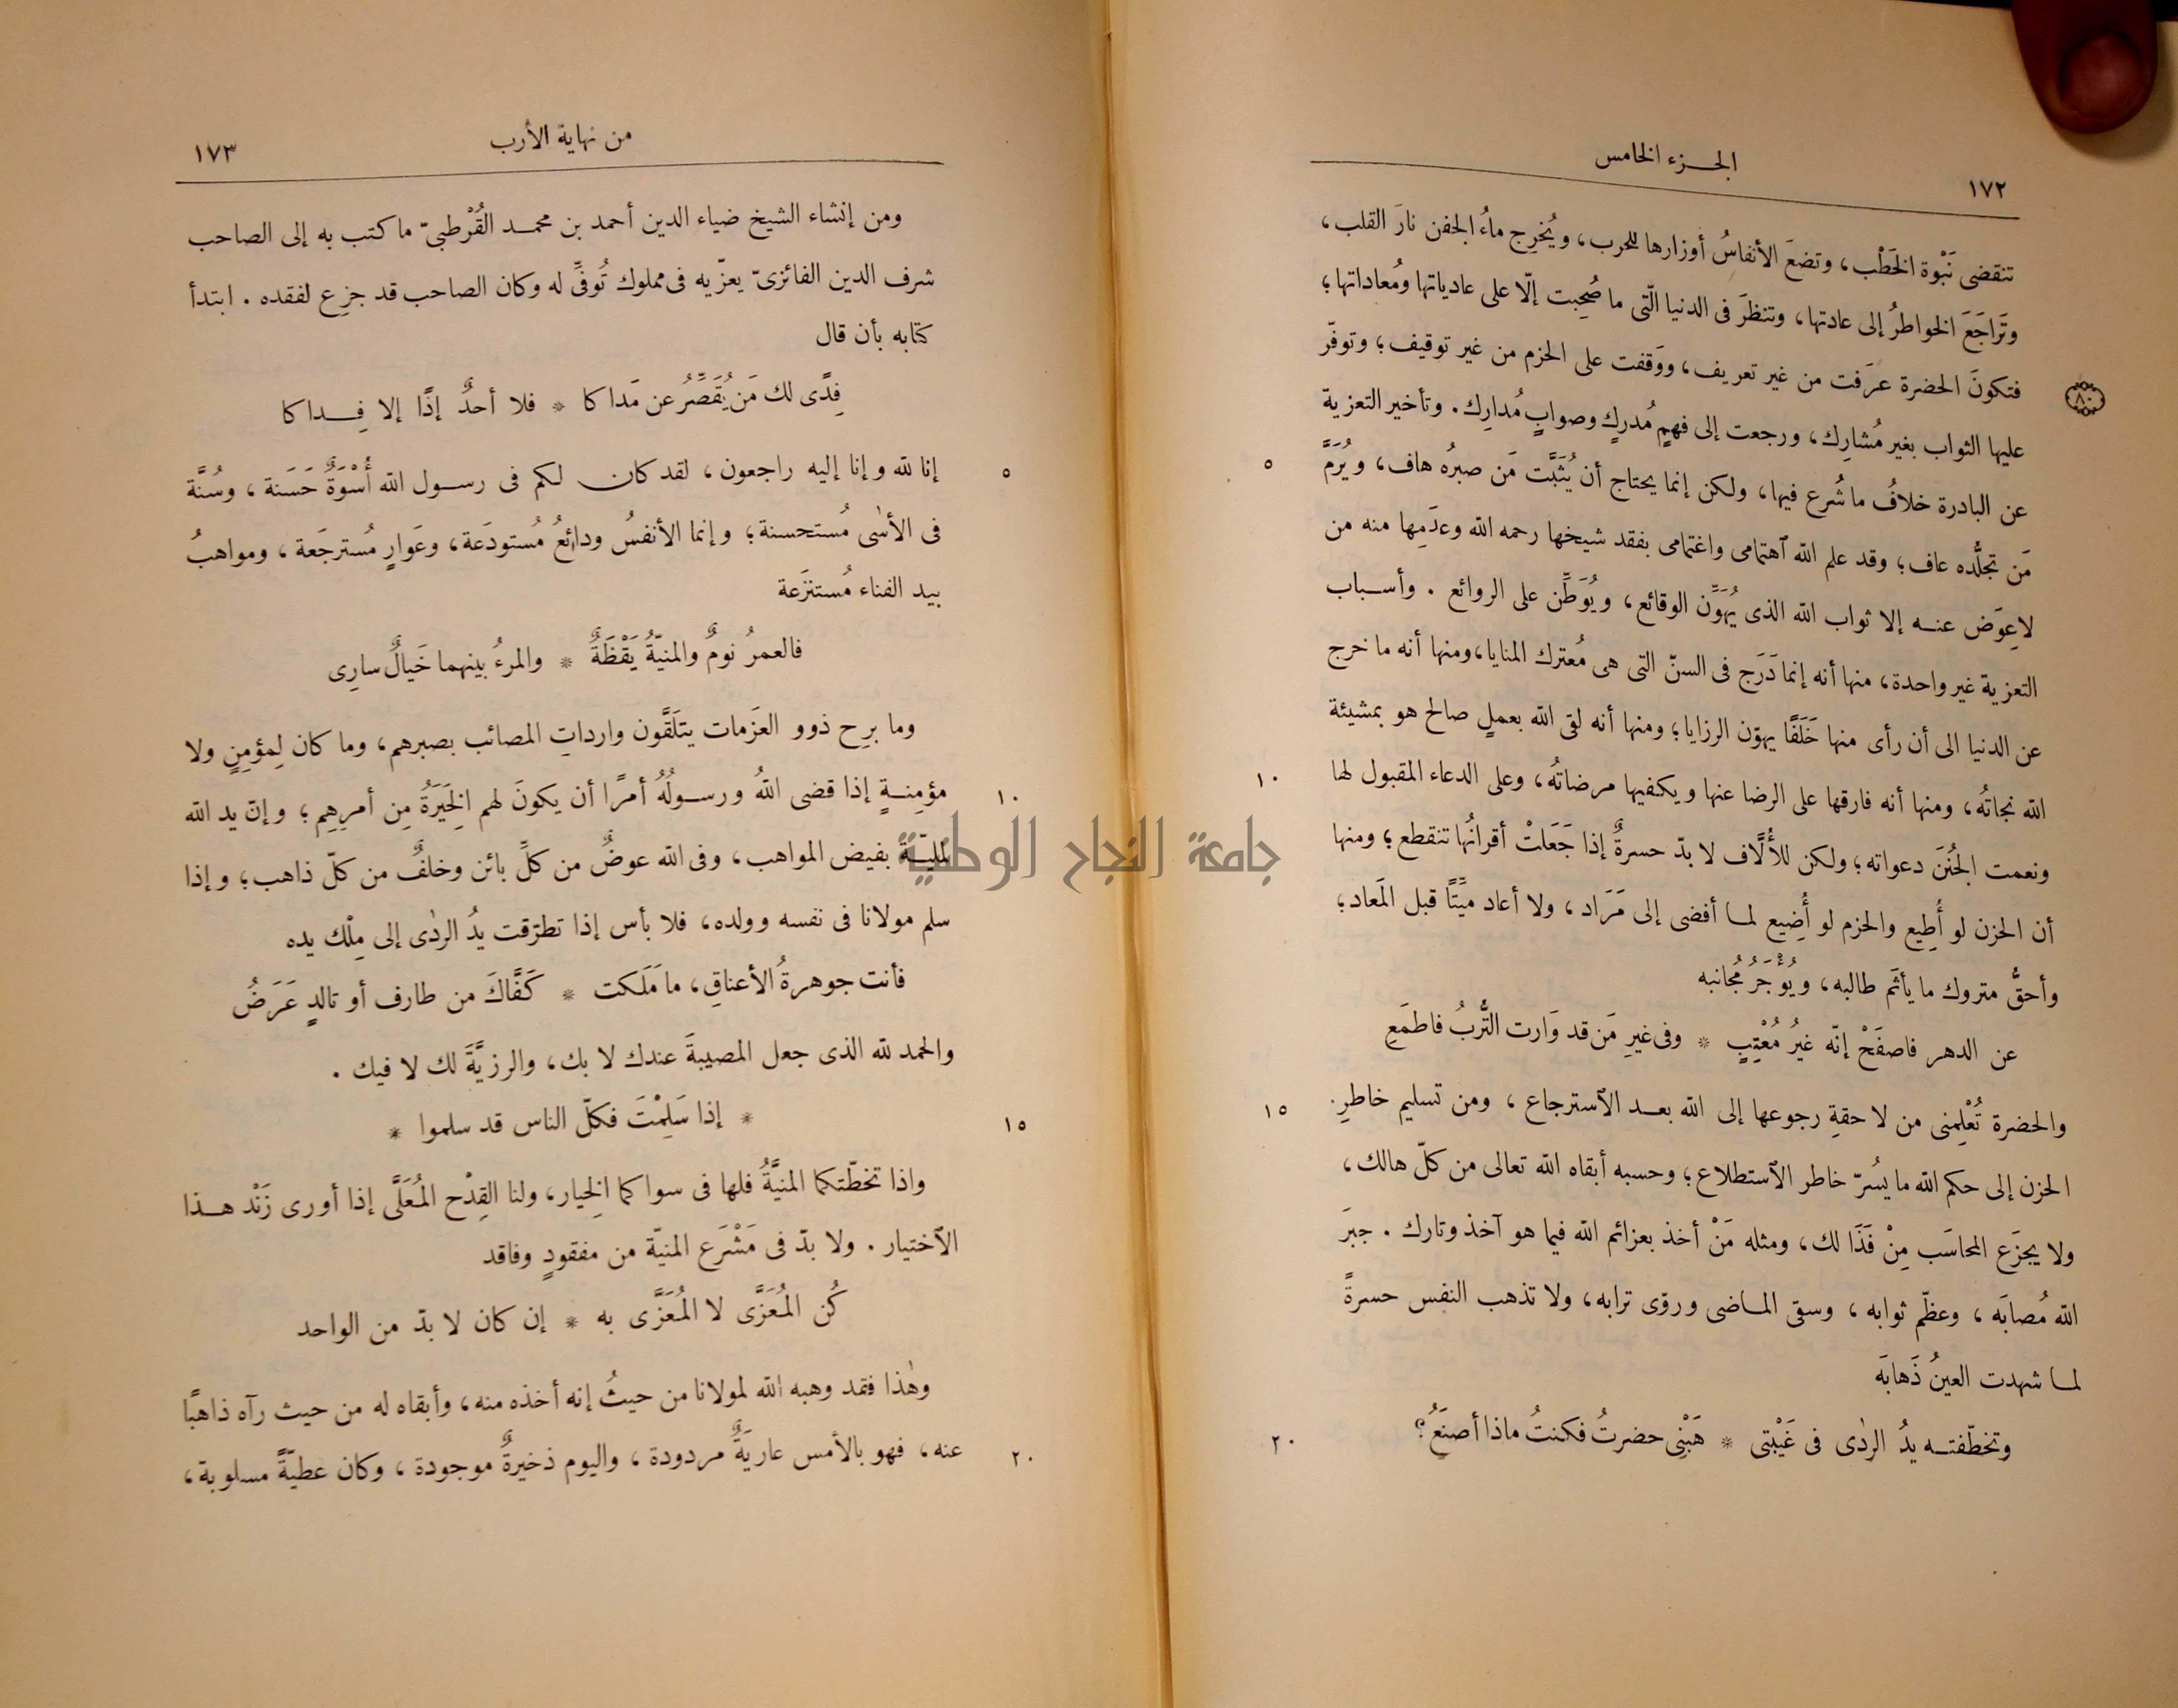 الجزء الخامس
١٧٢
تنقضى نَبْوة الخَطْب، وتضعَ الأنفاسُ أوزارها للحرب، ويُخرِج ماءُ الجفن نارَ القلب،
وتَراجَعَ الخواطرُ إلى عادتها، وتنظرَ فى الدنيا الّتى ما صُحِبت إلّا على عادياتها ومُعاداتها؛
فتكونَ الحضرة عرَفت من غير تعريف، ووَقفت على الحزم من غير توقيف؛ وتوفّر
٨٠
عليها الثواب بغير مُشارِك، ورجعت إلى فهمٍ مُدركٍ وصوابٍ مُدارِك. وتأخير التعزية
عن البادرة خلافُ ما شُرع فيها، ولكن إنما يحتاج أن يُثَبَّت مَن صبرُه هاف، ويُرَمَّ
٥
مَن تجلُّده عاف؛ وقد علم الله ٱهتمامى واغتمامى بفقد شيخها رحمه الله وعدَمِها منه من
لاعِوَض عنه إلا ثواب الله الذى يُهَوِّن الوقائع، ويُوَطِّن على الروائع. وأسباب
التعزية غير واحدة، منها أنه إنما دَرَج فى السنّ التى هى مُعترك المنايا، ومنها أنه ما خرج
عن الدنيا الى أن رأى منها خَلَفًا يهوّن الرزايا؛ ومنها أنه لقى الله بعملٍ صالح هو بمشيئة
الله نجاتُه، ومنها أنه فارقها على الرضا عنها ويكفيها مرضاتُه، وعلى الدعاء المقبول لها
١٠
ونعمت الجُنَن دعواته؛ ولكن للأُلَّاف لا بدّ حسرةٌ إذا جَعَلتْ أقرانُها تنقطع؛ ومنها
أن الحزن لو أُطِيع والحزم لو أُضِيع لما أفضى إلى مَرَاد، ولا أعاد ميِّتًا قبل المَعاد؛
وأحقُّ متروك ما يأثَم طالبه، ويُؤْجَرُ مُجانبه
عن الدهر فاصفَحْ إنّه غيرُ مُعْتِبٍ * وفى غيرِ مَن قد وَارت التُّربُ فاطمَعِ
والحضرة تُعْلِمنى من لاحقةِ رجوعها إلى الله بعد الٱسترجاع، ومن تسليم خاطرِ
١٥
الحزن إلى حكم الله ما يسُرّ خاطر الٱستطلاع؛ وحسبه أبقاه الله تعالى من كلّ هالك،
ولا يجزَع المحاسَب مِنْ فَذَا لك، ومثله مَنْ أخذ بعزائم الله فيما هو آخذ وتارك. جبرَ
الله مُصابَه، وعظّم ثوابه، وسقى الماضى وروّى ترابه، ولا تذهب النفس حسرةً
لما شهدت العينُ ذَهابَه
وتخطّفته يدُ الردٰى فى غَيْبتى * هَبْنِى حضرتُ فكنتُ ماذا أصنَعُ؟
٢٠
من نهاية الأرب
١٧٣
ومن إنشاء الشيخ ضياء الدين أحمد بن محمد القُرْطبىّ ما كتب به إلى الصاحب
شرف الدين الفائزىّ يعزّيه فى مملوك تُوفِّى له وكان الصاحب قد جزِع لفقده. ابتدأ
كتابه بأن قال
فِدًى لك مَن يُقَصِّرُ عن مَداكا * فلا أحدٌ إذًا إلا فِداكا
إنا لله وإنا إليه راجعون، لقد كان لكم فى رسول الله أُسْوَةٌ حَسَنة، وسُنَّة
٥
فى الأسٰى مُستحسنة؛ وإنما الأنفسُ ودائعُ مُستودَعة، وعَوارٍ مُسترجَعة، ومواهبُ
بيد الفناء مُستنزَعة
فالعمرُ نومٌ والمنيّةُ يَقْظَةٌ * والمرءُ بينهما خَيالٌ سارِى
وما برِح ذوو العَزَمات يتلَقَّون وارداتِ المصائب بصبرهم، وما كان لِمؤمِنٍ ولا
مؤمِنةٍ إذا قضى اللهُ ورسولُهُ أمرًا أن يكونَ لهم الخِيَرَةُ مِن أمرِهِم؛ وإنّ يد الله
١٠
لمليّةٌ بفيض المواهب، وفى الله عوضٌ من كلِّ بائن وخلفٌ من كلّ ذاهب؛ وإذا
سلم مولانا فى نفسه وولده، فلا بأس إذا تطرّقت يدُ الردٰى إلى مِلْك يده
فأنت جوهرةُ الأعناقِ، ما مَلَكت * كَفَّاكَ من طارف أو تالدٍ عَرَضُ
والحمد لله الذى جعل المصيبةَ عندك لا بك، والرزيَّةَ لك لا فيك.
* إذا سَلِمْتَ فكلّ الناس قد سلموا *
١٥
واذا تخطّتكما المنيَّةُ فلها فى سواكما الخِيار، ولنا القِدْح المُعَلَّى إذا أورى زَنْد هذا
الٱختيار. ولا بدّ فى مَشْرَع المنيّة من مفقودٍ وفاقد
كُن المُعَزَّى لا المُعَزَّى به * إن كان لا بدّ من الواحد
وهٰذا فقد وهبه الله لمولانا من حيثُ إنه أخذه منه، وأبقاه له من حيث رآه ذاهبًا
عنه، فهو بالأمس عاريَةٌ مردودة، واليوم ذخيرةٌ موجودة، وكان عطيّةً مسلوبة،
٢٠
جامعة النجاح الوطنية